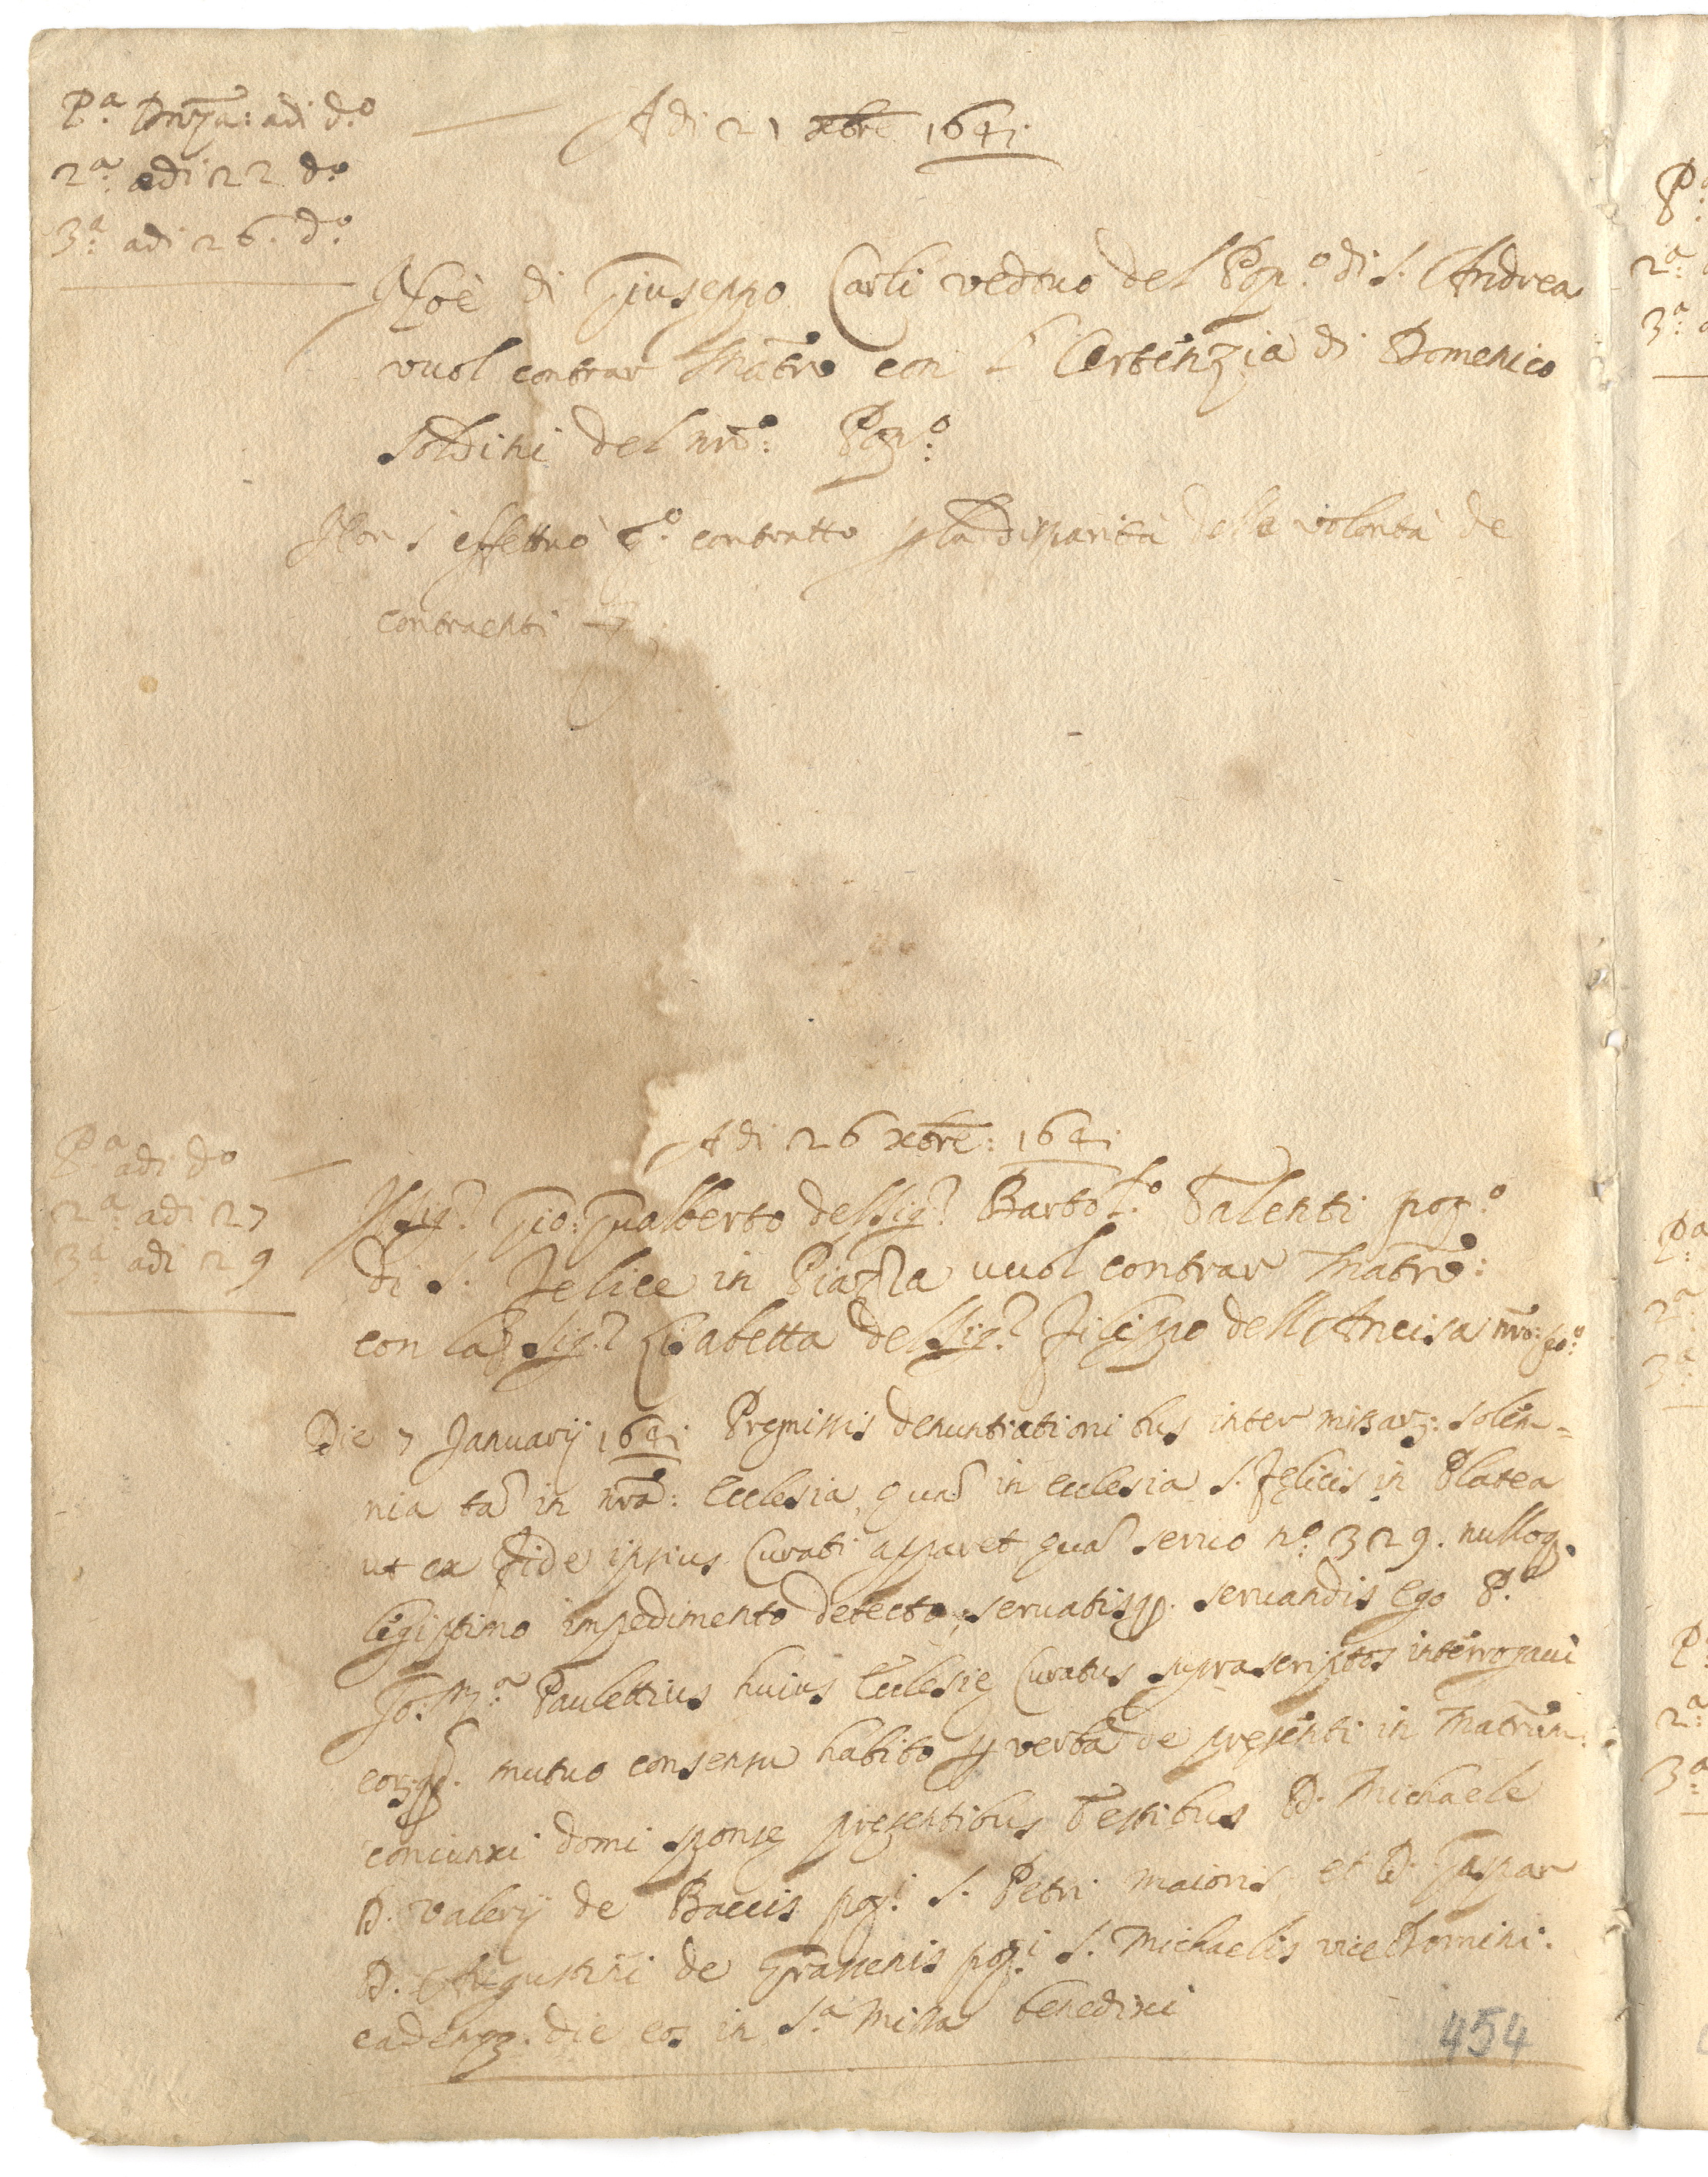 Pª Dn̄za: adi d.º
2ª adi 22 dº
3ª adi 26. dº
Adi 21 xbre 1641
Noè di Giuseppo Carli vedovo del Pop.º di S. Andrea
vuol contrar Matr̄o con l' Ortenzia di Domenico
Soldini del nr̄o: Pop.º
Non s' effettuò q.º contratto p la disparità delle volontà de
contraenti
Pª adi dº
2ª adi 27
3ª adi 29
Adi 26 xbre: 1641
Il Sig.r Gio: Gualberto del Sig.r Bartol.º Talenti pop.º
di S. Felice in Piazza vuol contrar Matr̄o:
con la Sig.ra Lisabetta del Sig.r Filippo dell'Ancisa nr̄o: po:º
Die 7 Januarij 1641 Premissis denuntiationibus inter missarz: solem=
nia ta in nra: Ecclesia, qua in ecclesia S. Felicis in Platea
ut ex fide ipsius Curati apparet qua seruo nº. 329. nulloq.
legiptimo impedimento detecto, seruatisq. seruandis Ego P.
Jo: Mª Paulettius huius Ecclesię Curatus suprascriptos interrogaui
eorz:q. mutuo consensu habito p verba de presenti in Matrim:
coniunxi domi sponsę presentibus Testibus D. Michaele
D. Valerij de Baccis pop.i S. Petri Maioris et D. Gaspar
D. Augustini de pop.i S. Michaelis viceDomini.
eademq. die eos in S.ª Missa benedixi
454